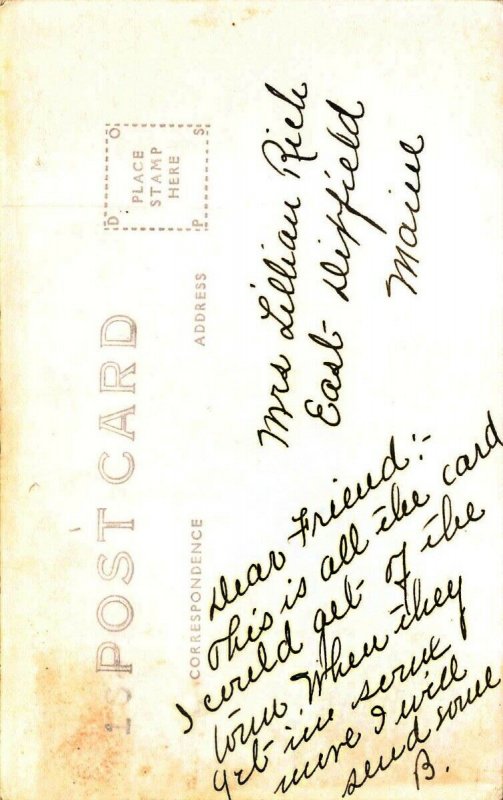 POST CARD
CORRESPONDENCE
ADDRESS
D O
PLACE
STAMP
HERE
P S
Dear Friend:-
This is all the card
I could get of the
town. When they
get in some
more I will
send some
B.
Mrs Lillian Rich
East Dixfield
Maine